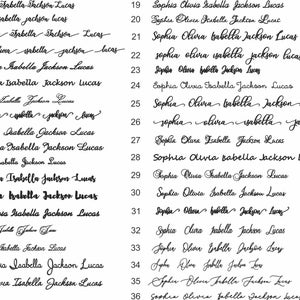 Isabella Jackson Lucas
isabella jackson lucas
Isabella Jackson Lucas
isabella jackson lucas
Isabella Jackson Lucas
Isabella Jackson Lucas
Isabella Jackson Lucas
isabella jackson lucas
Isabella Jackson Lucas
Isabella Jackson Lucas
Isabella Jackson Lucas
Isabella Jackson Lucas
Isabella Jackson Lucas
Isabella Jackson Lucas
Isabella Jackson Lucas
Isabella Jackson Lucas
Isabella Jackson Lucas
Isabella Jackson Lucas
19 Sophia Olivia Isabella Jackson Lucas
20 Sophia Olivia Isabella Jackson Lucas
21 Sophia Olivia Isabella Jackson Lucas
22 Sophia Olivia Isabella Jackson Lucas
23 Sophia Olivia Isabella Jackson Lucas
24 Sophia Olivia Isabella Jackson Lucas
25 Sophia Olivia Isabella Jackson
26 Sophia Olivia isabella ja
27 Sophia Olivia Isabella Jackson Lucas
28 Sophia Olivia Isabella Jackson
29 Sophia Olivia Isabella Jackson Lucas
30 Sophia Olivia Isabella Jackson Lucas
31 Sophia Olivia Isabella Jackson Lucas
32 Sophia Olivia Isabella Jackson Lucas
33 Sophia Olivia Isabella Jackson Lucas
34 Sophia Olivia Isabella Jackson Lucas
35 Sophia Olivia Isabella Jackson Lucas
36 Sophia Olivia Isabella Jackson Lucas